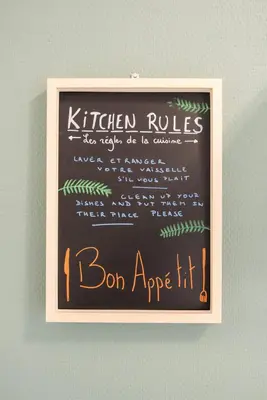 KITCHEN RULES
Les règles de la cuisine
LAVER ET RANGER
VOTRE VAISSELLE
S'IL VOUS PLAIT
CLEAN UP YOUR
DISHES AND PUT THEM IN
THEIR PLACE PLEASE
Bon Appétit!